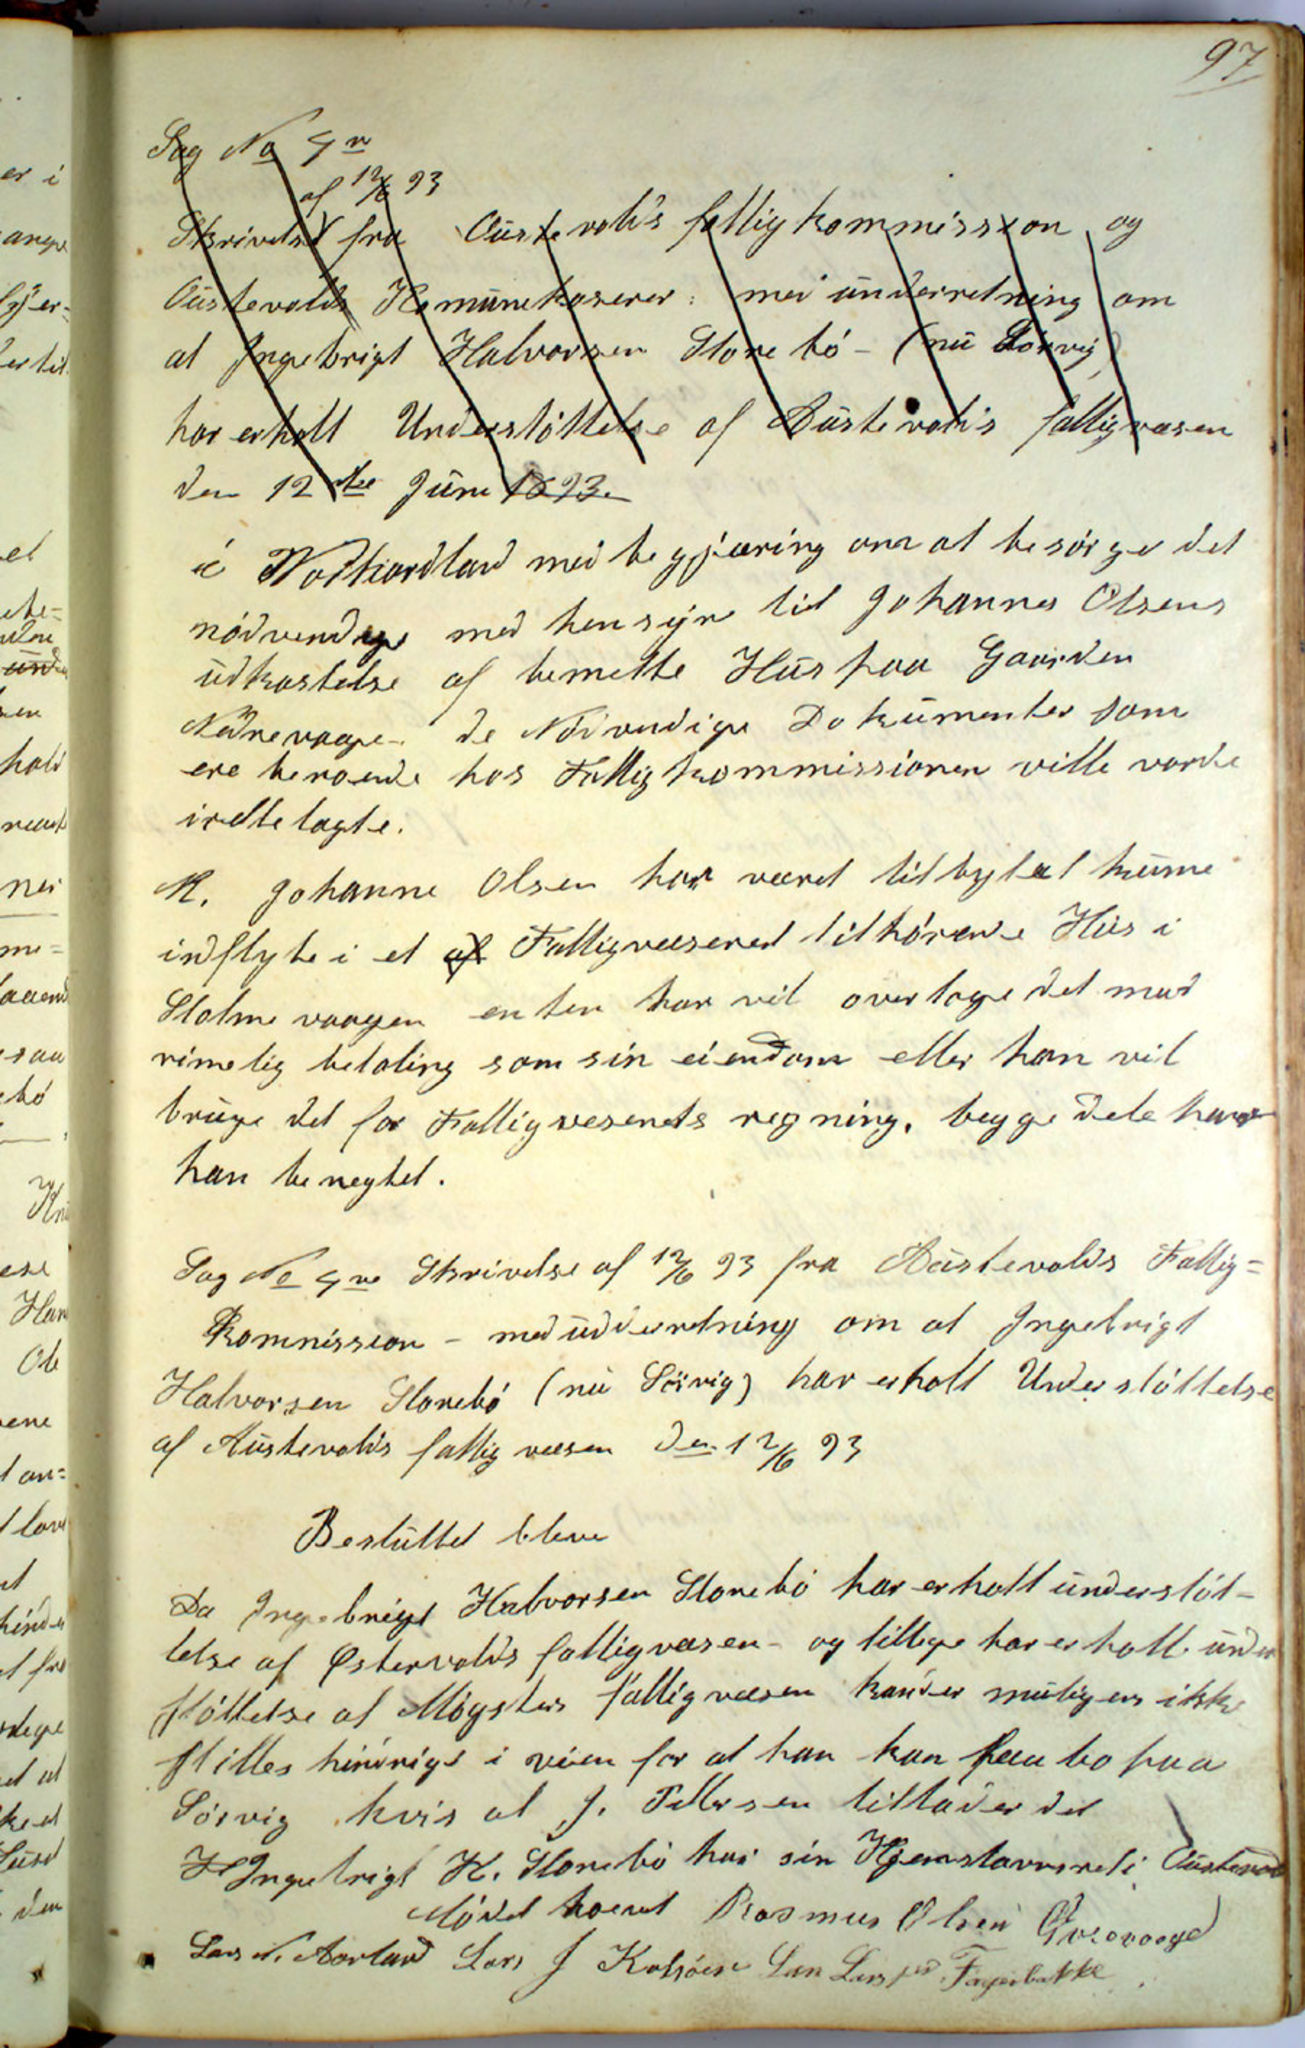 97
Sag No 4re
af 12/6 93
Skrivelse fra Austevolds fattigkommission og
Austevolds Komunekaserer: med underretning om
at Ingebrigt Halvorsen Storebö - (nu Sörvig)
har erholt Understöttelse af Austevolds fattigvæsen
den 12te Juni 1893.
i Nordhordland med begjæring om at besörge det
nödvendige med hensyn til Johannes Olsens
udkastelse af bemelte Hus paa Gaarden
Nedrevaage - de Nödvendige Dokumenter som
ere beroende hos Fattigkommissionen ville vorde
irettelagte.
M. Johanne Olsen har været tilbytet kunne
indflyte i et af Fattigvæsenet tilhörende Hus i
Stolmevaagen enten han vil overtage det mod
rimelig betaling som sin eiendom eller han vil
bruge det for Fattigvesenets regning, begge dele haver
han benegtet.
Sag No 4re Skrivelse af 12/6 93 fra Austevolds Fattig=
Kommission - med udderretning om at Ingebrigt
Halvorsen Storebö (nu Sörvig) har erholt Understöttelse
af Austevolds fattigvæsen den 12/6 93
Besluttet bleve
Da Ingebrigt Halvorsen Storebö har erholt understöt-
telse af Østervolds fattigvæsen - og tillige har erholt under
stöttelse af Mögsters fattigvæsen kan der muligens ikke
stilles hindrige i veien for at han kan faa bo paa
Sörvig hvis at J. Pettersen tillader det
Ingebrigt H. Storebö har sin Hjemstavnsret i Austevold
Mödet hævet Rasmus Olsen
Lars N. Aarland Lars J Kalvöen Lars Larssen Fagerbakke